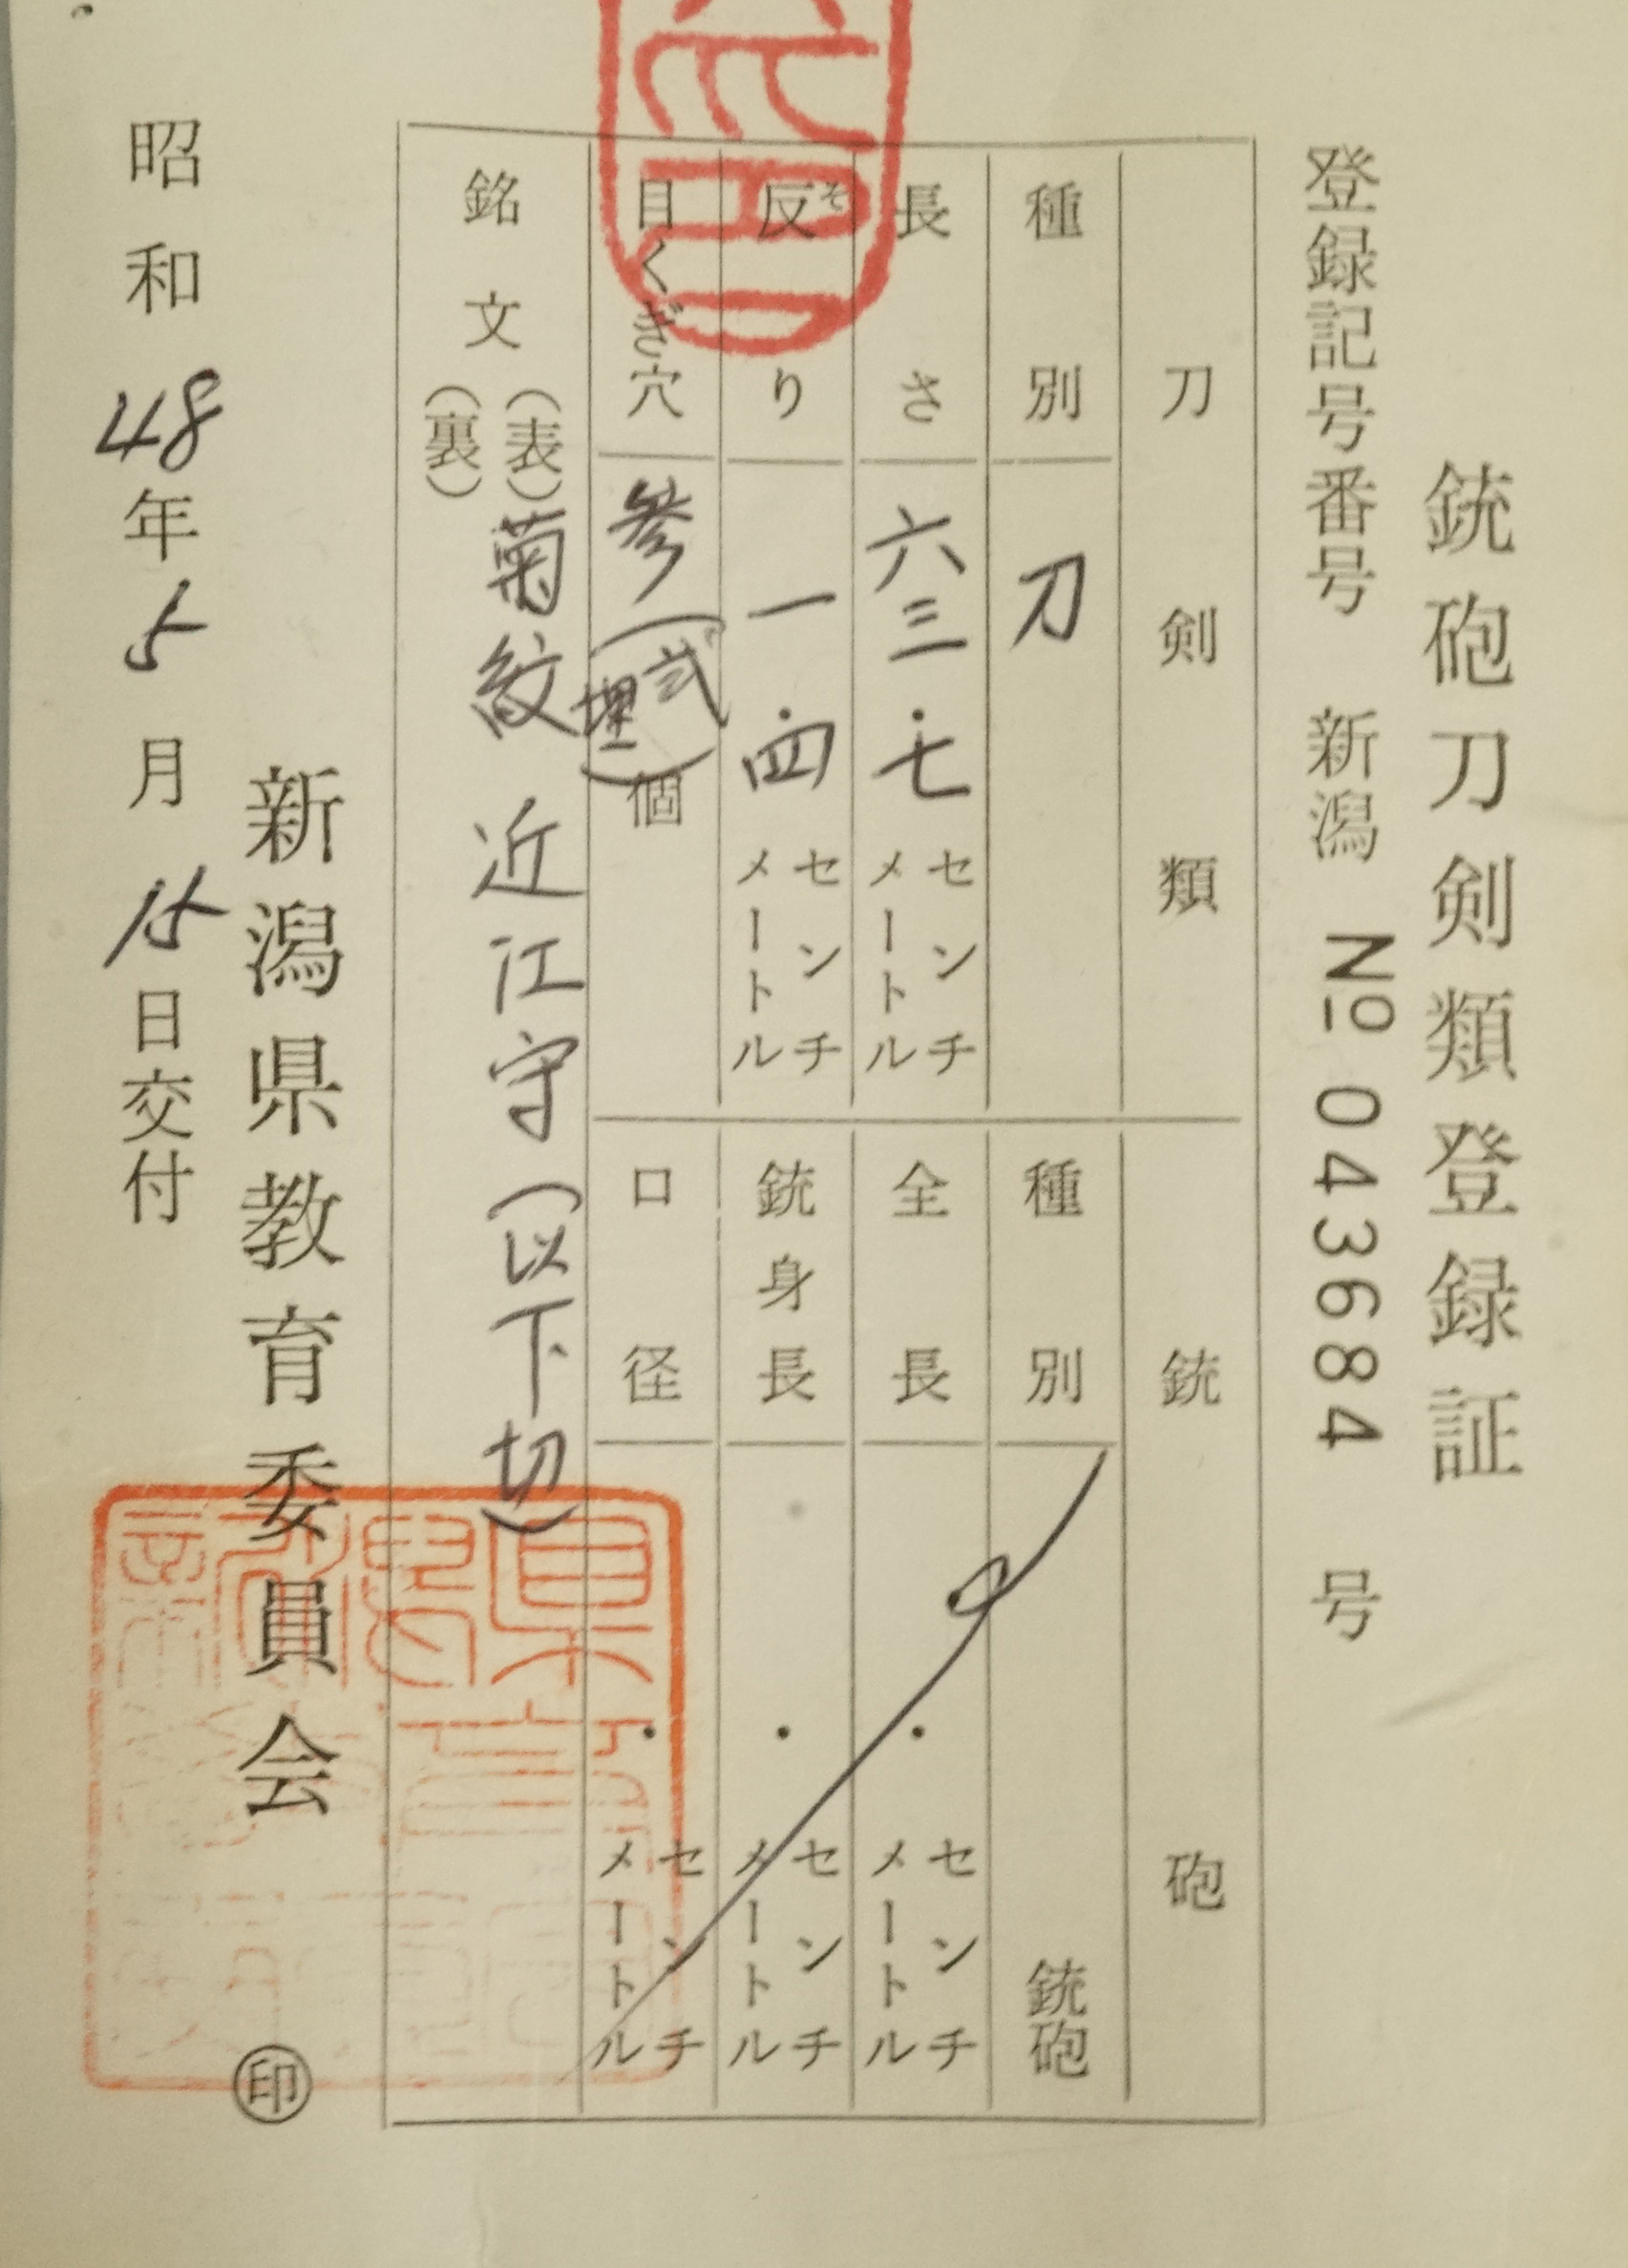 銃砲刀剣類登録証
登録記号番号 新潟 № 043684 号
刀剣類
種別 刀
長さ 六三・七 センチメートル
反り 一・四 センチメートル
そ
目くぎ穴 参(弐埋)個
銃砲
種別 銃砲
全長 ・ センチメートル
銃身長 ・ センチメートル
口径 ・ センチメートル
銘文(表)菊紋 近江守(以下切)
(裏)
新潟県教育委員会 ㊞
昭和48年5月15日交付